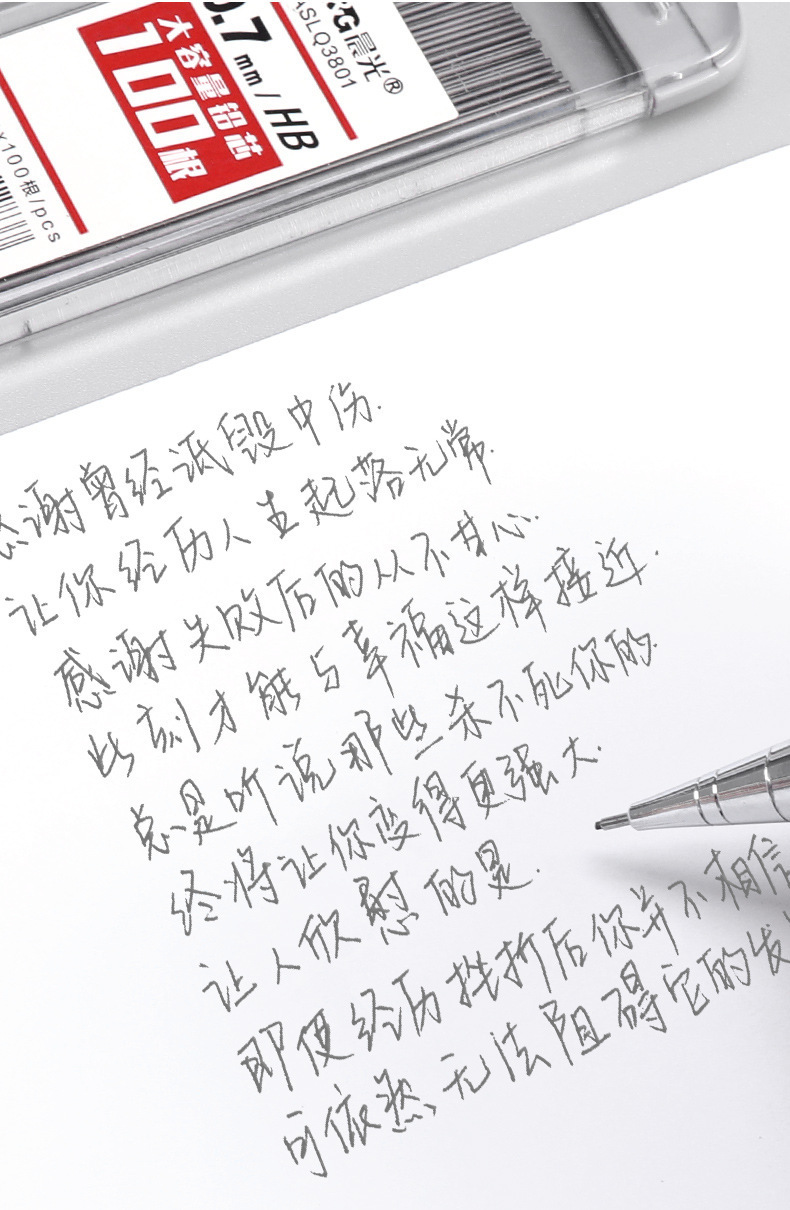 &G晨光®
ASLQ3801
0.7mm/HB
大容量铅芯
100根
x100根/pcs
感谢曾经诋毁中伤.
让你经历人生起落无常.
感谢失败后的从不甘心.
此刻才能与幸福这样接近.
总是听说那些杀不死你的.
终将让你变得更强大.
让人欣慰的是.
即便经历挫折后你并不相信
可依然无法阻碍它的发